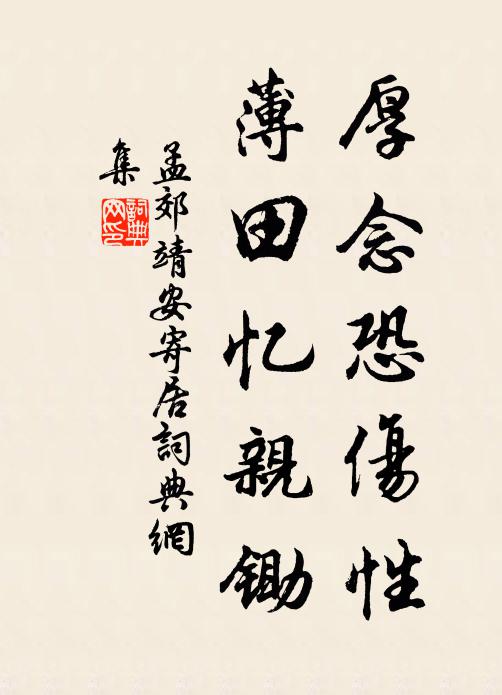 厚念恐傷性
薄田忆親鋤
孟郊靖安寄居詞典網
集
詞典
网印